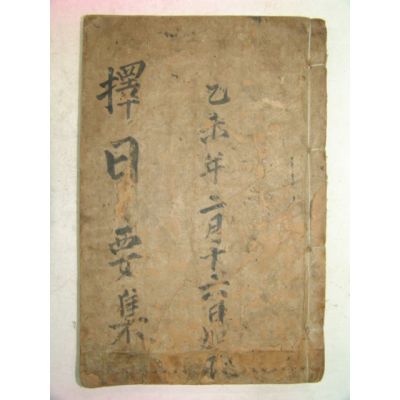 擇日要集
乙未年二月十六日始